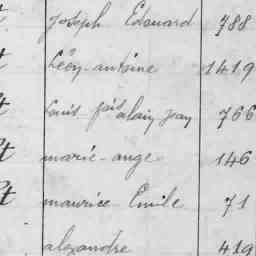 Joseph Edouard 788
Léon-antoine 1419
Louis alain jean 766
marie-ange 146
maurice Emile 71
alexandre 419